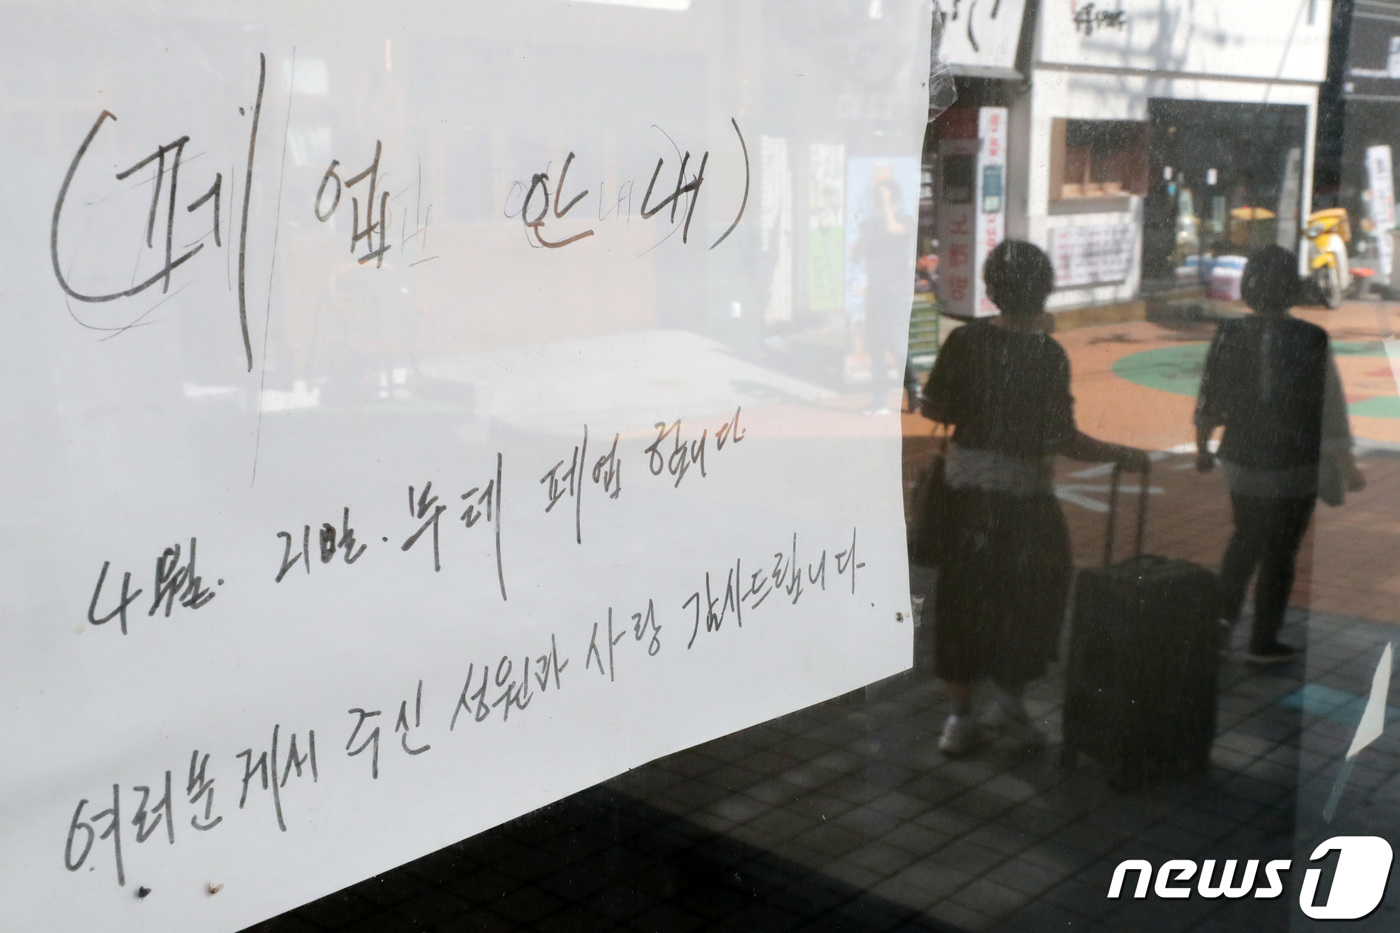 (폐 업 안 내)
4월. 21일. 부테 폐업 합니다.
여러분게서 주신 성원과 사랑 감사드립니다.
news1